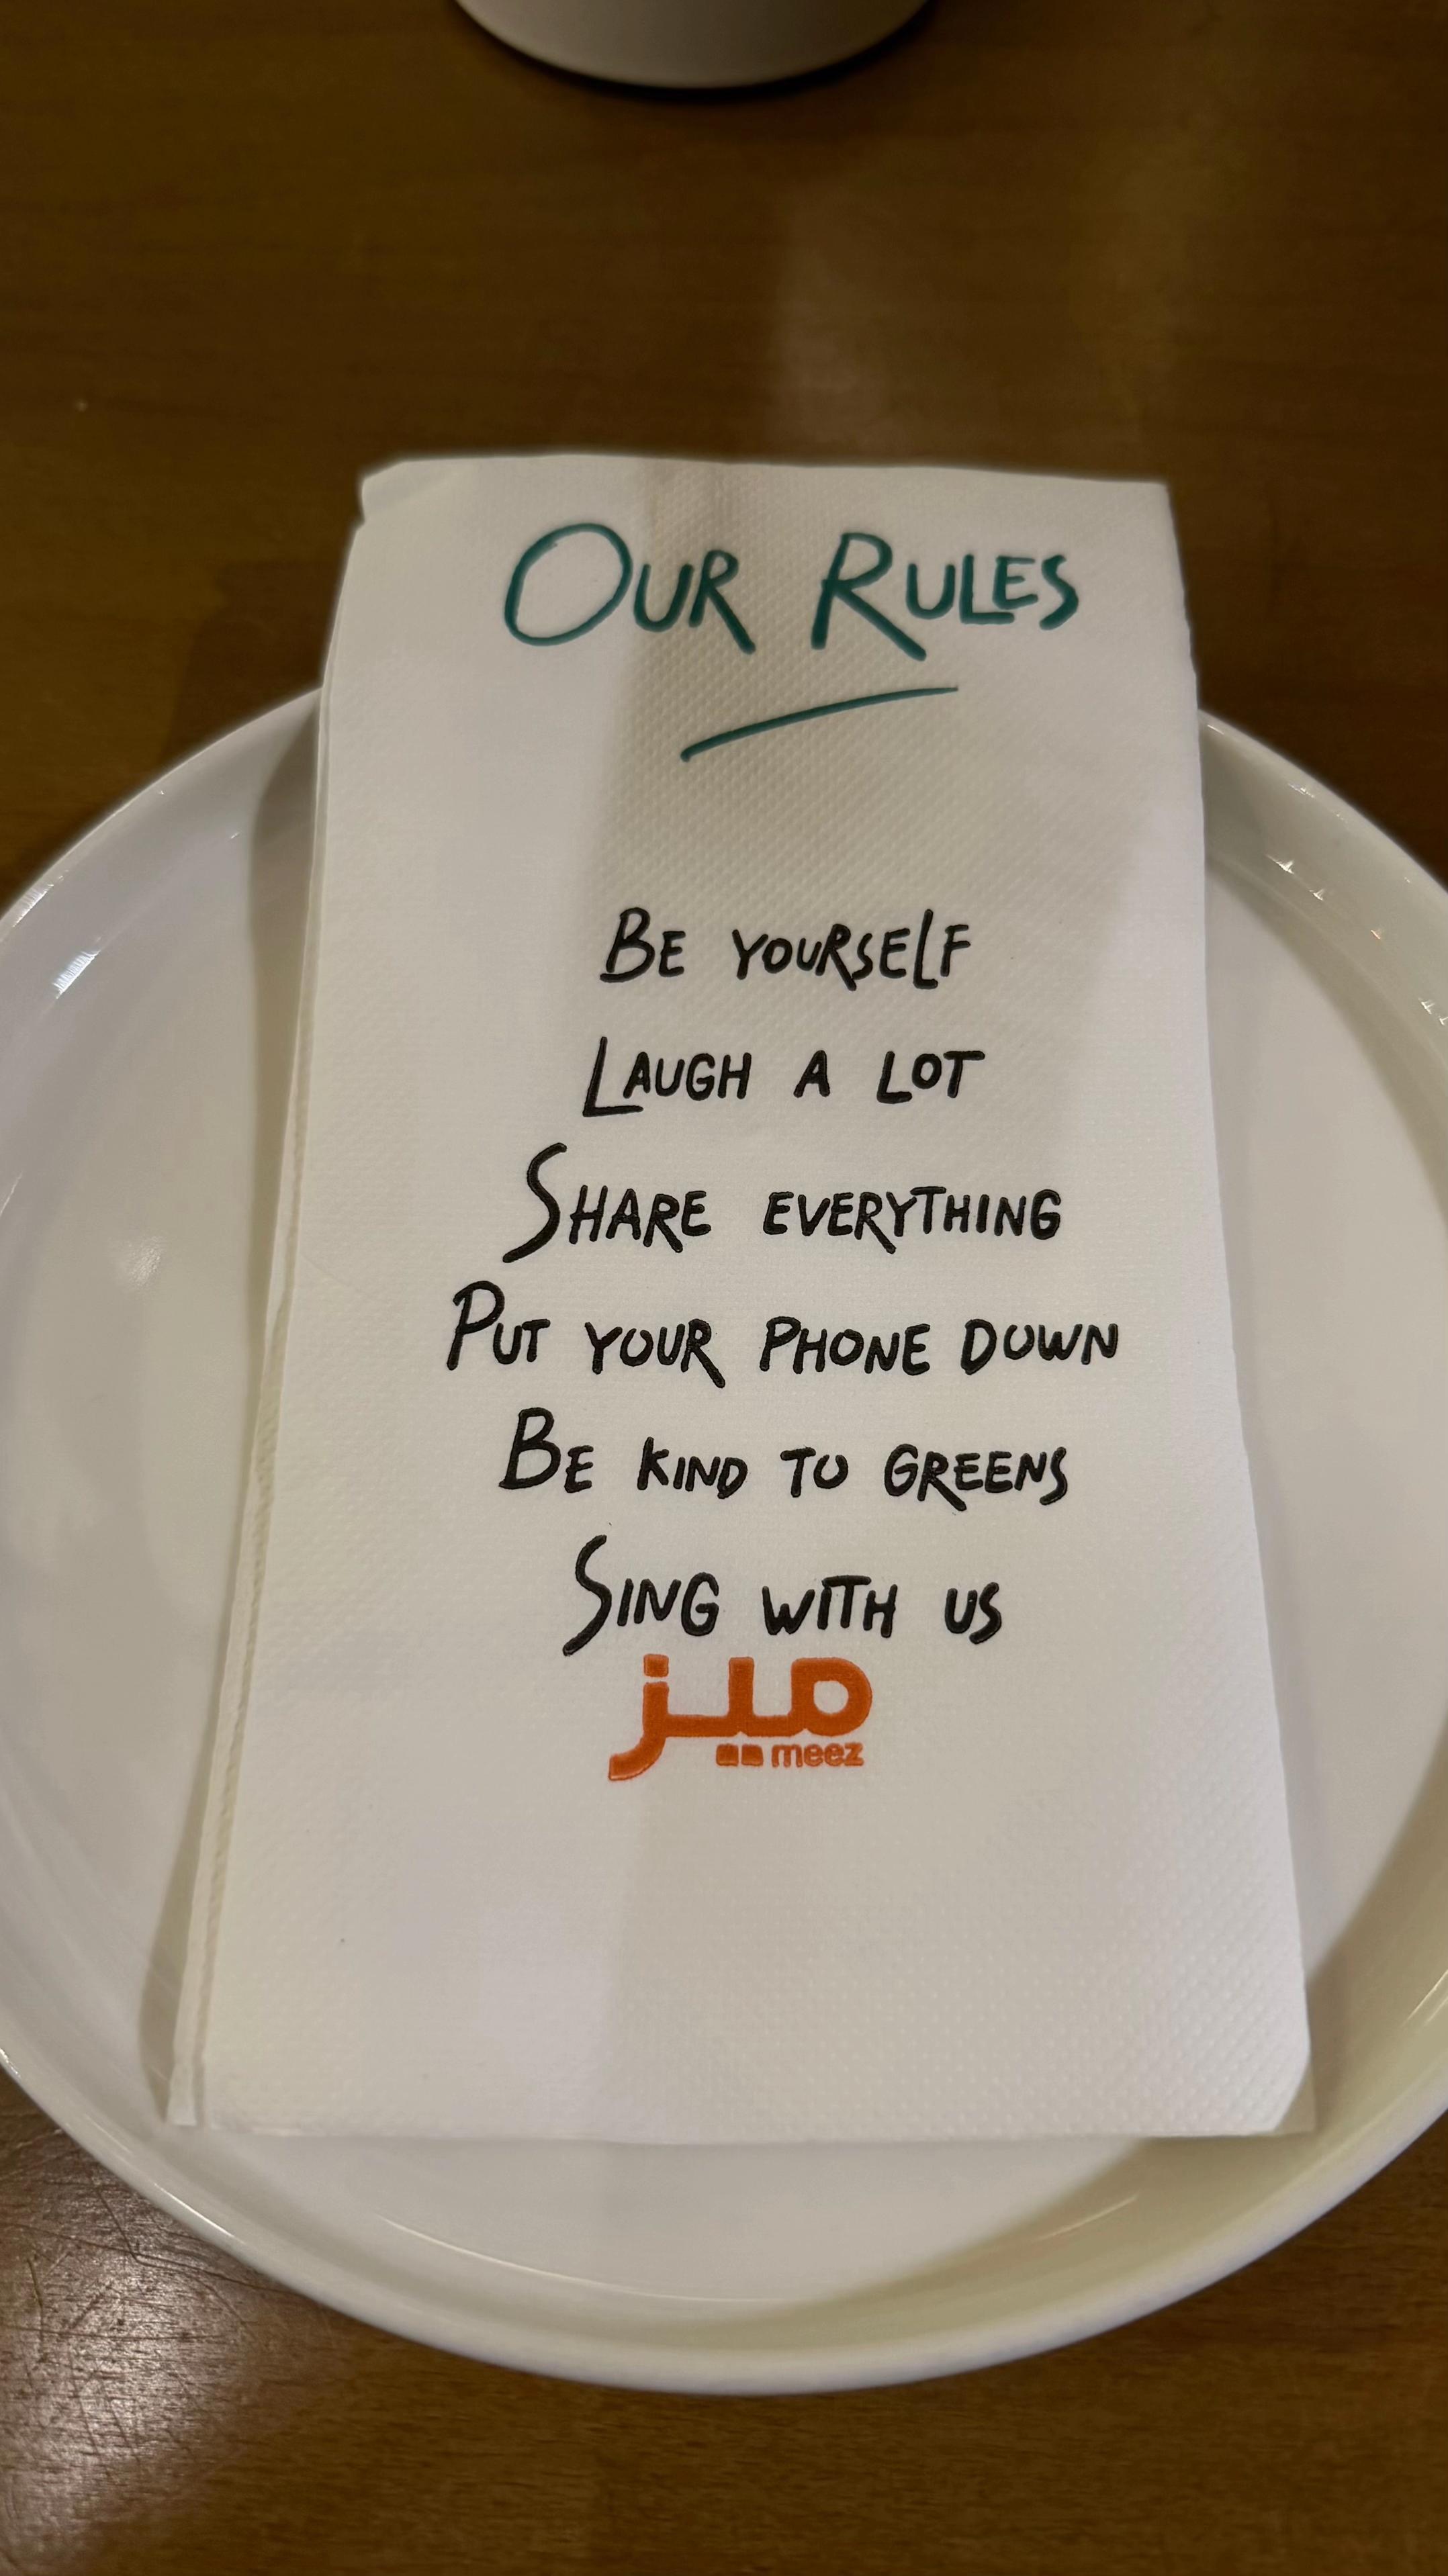 OUR RULES
BE YOURSELF
LAUGH A LOT
SHARE EVERYTHING
PUT YOUR PHONE DOWN
BE KIND TO GREENS
SING WITH US
ميز
meez